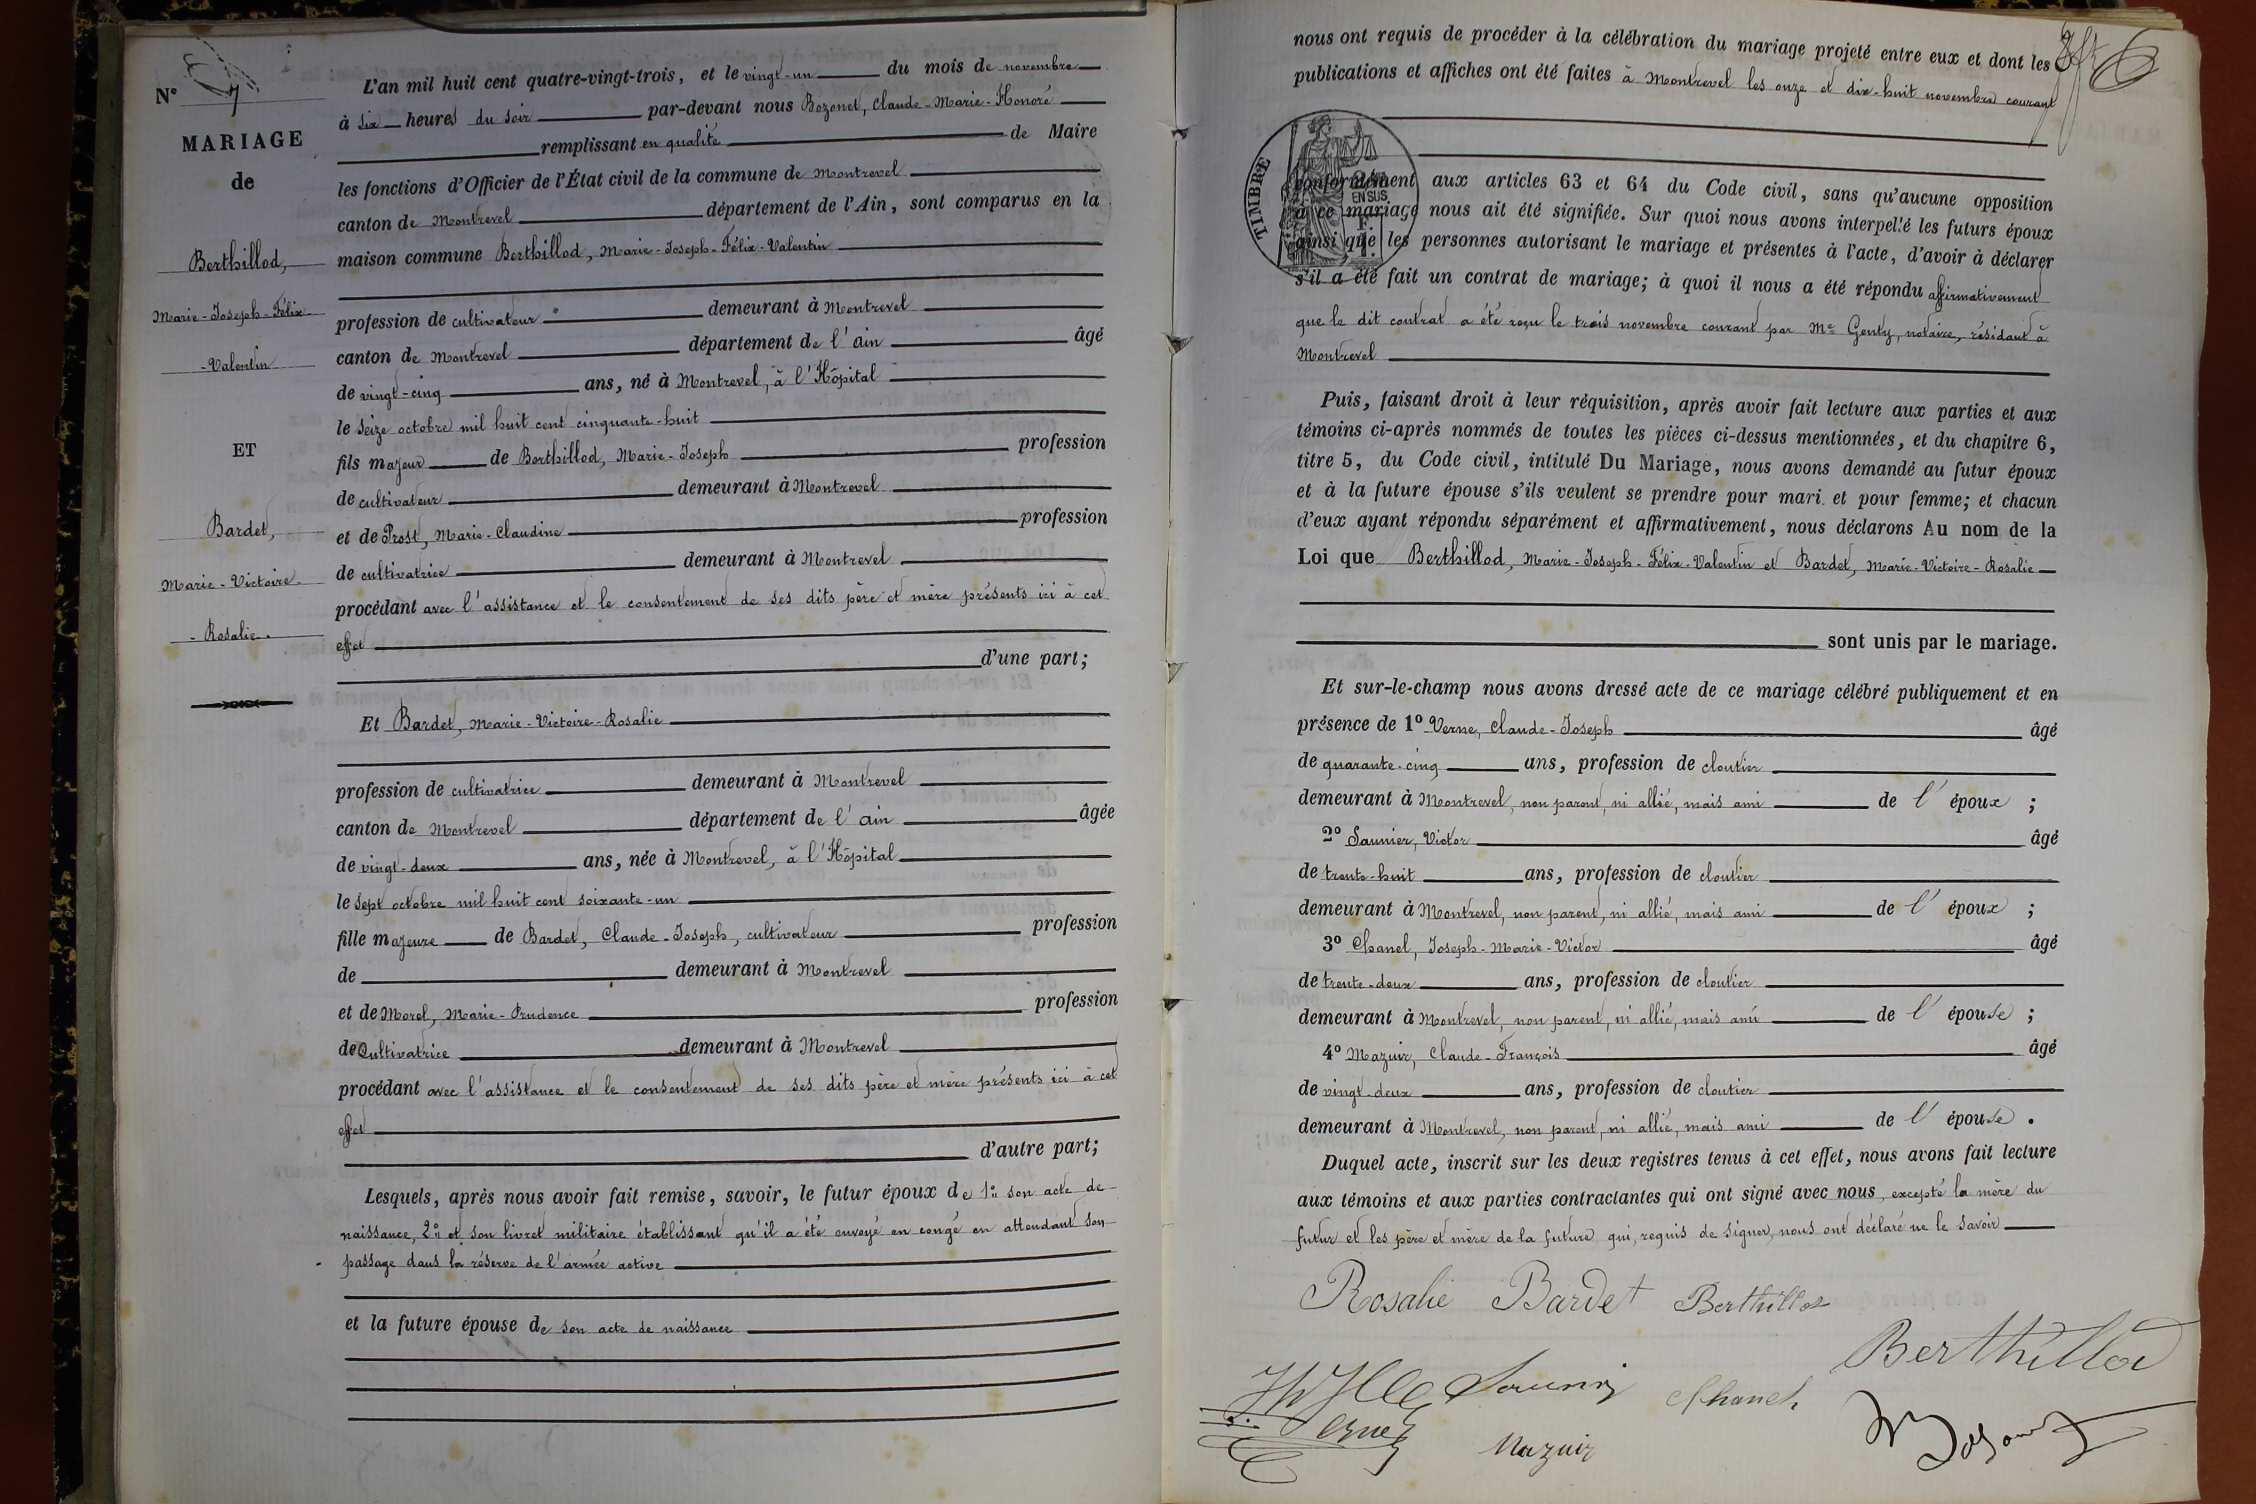 N° 7
MARIAGE
de
Berthillod,
Marie-Joseph-Félix
-Valentin
ET
Bardet,
Marie-Victoire-
-Rosalie.
L'an mil huit cent quatre-vingt-trois, et le vingt-un du mois de novembre
à six heures du soir par-devant nous Bozonet, Claude-Marie-Honoré
remplissant en qualité de Maire
les fonctions d'Officier de l'État civil de la commune de Montrevel
canton de Montrevel département de l'Ain, sont comparus en la
maison commune Berthillod, Marie-Joseph-Félix-Valentin
profession de cultivateur demeurant à Montrevel
canton de Montrevel département de l'ain âgé
de vingt-cinq ans, né à Montrevel, à l'Hôpital
le seize octobre mil huit cent cinquante-huit
fils majeur de Berthillod, Marie-Joseph profession
de cultivateur demeurant à Montrevel
et de Prost, Marie-Claudine profession
de cultivatrice demeurant à Montrevel
procédant avec l'assistance et le consentement de ses dits père et mère présents ici à cet
effet
d'une part;
Et Bardet, Marie-Victoire-Rosalie
profession de cultivatrice demeurant à Montrevel
canton de Montrevel département de l'ain âgée
de vingt-deux ans, née à Montrevel, à l'Hôpital
le sept octobre mil huit cent soixante-un
fille majeure de Bardet, Claude-Joseph, cultivateur profession
de demeurant à Montrevel
et de Morel, Marie-Prudence profession
de Cultivatrice demeurant à Montrevel
procédant avec l'assistance et le consentement de ses dits père et mère présents ici à cet
effet
d'autre part;
Lesquels, après nous avoir fait remise, savoir, le futur époux de 1° son acte de
naissance, 2° et son livret militaire établissant qu'il a été envoyé en congé en attendant son
passage dans la réserve de l'armée active
et la future épouse de son acte de naissance
nous ont requis de procéder à la célébration du mariage projeté entre eux et dont les
publications et affiches ont été faites à Montrevel les onze et dix-huit novembre courant
TIMBRE
EN SUS
conformément aux articles 63 et 64 du Code civil, sans qu'aucune opposition
à ce mariage nous ait été signifiée. Sur quoi nous avons interpellé les futurs époux
ainsi que les personnes autorisant le mariage et présentes à l'acte, d'avoir à déclarer
s'il a été fait un contrat de mariage; à quoi il nous a été répondu affirmativement
que le dit contrat a été reçu le trois novembre courant par Me Genty, notaire, résidant à
Montrevel
Puis, faisant droit à leur réquisition, après avoir fait lecture aux parties et aux
témoins ci-après nommés de toutes les pièces ci-dessus mentionnées, et du chapitre 6,
titre 5, du Code civil, intitulé Du Mariage, nous avons demandé au futur époux
et à la future épouse s'ils veulent se prendre pour mari et pour femme; et chacun
d'eux ayant répondu séparément et affirmativement, nous déclarons Au nom de la
Loi que Berthillod, Marie-Joseph-Félix-Valentin et Bardet, Marie-Victoire-Rosalie
sont unis par le mariage.
Et sur-le-champ nous avons dressé acte de ce mariage célébré publiquement et en
présence de 1° Verne, Claude-Joseph âgé
de quarante-cinq ans, profession de cloutier
demeurant à Montrevel, non parent, ni allié, mais ami de l'époux ;
2° Saunier, Victor âgé
de trente-huit ans, profession de cloutier
demeurant à Montrevel, non parent, ni allié, mais ami de l'époux ;
3° Chanel, Joseph-Marie-Victor âgé
de trente-deux ans, profession de cloutier
demeurant à Montrevel, non parent, ni allié, mais ami de l'épouse ;
4° Mazuir, Claude-François âgé
de vingt-deux ans, profession de cloutier
demeurant à Montrevel, non parent, ni allié, mais ami de l'épouse .
Duquel acte, inscrit sur les deux registres tenus à cet effet, nous avons fait lecture
aux témoins et aux parties contractantes qui ont signé avec nous, excepté la mère du
futur et les père et mère de la future qui, requis de signer, nous ont déclaré ne le savoir
Rosalie Bardet Berthillod
Berthillod
Saunier Chanel
Verne
Mazuir